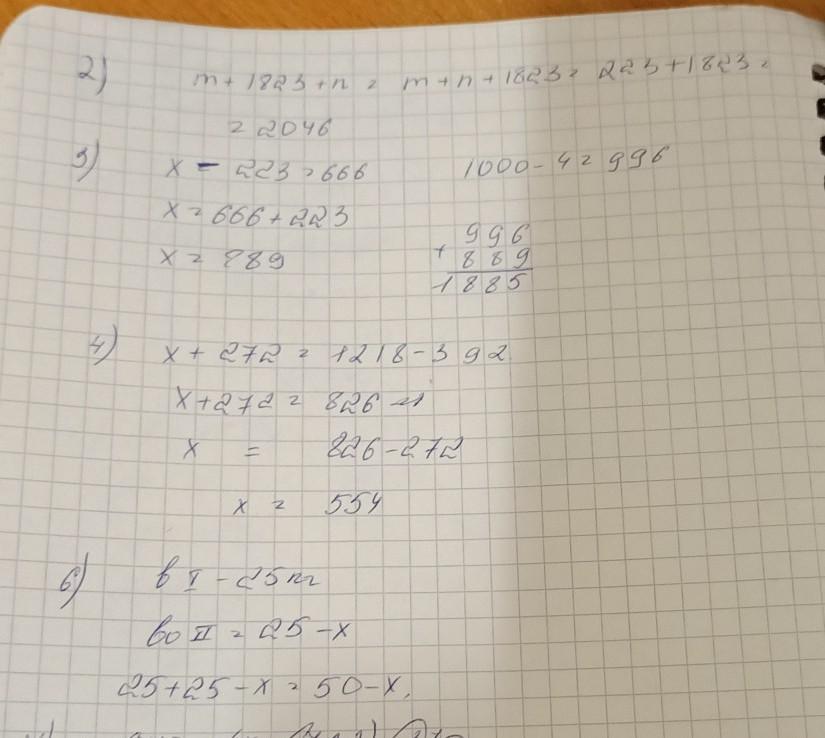 2) m + 1823 + n = m + n + 1823 = 223 + 1823 =
= 2046
3) x - 223 = 666 1000 - 4 = 996
x = 666 + 223
x = 889
+ 996
889
1885
4) x + 272 = 1218 - 392
x + 272 = 826
x = 826 - 272
x = 554
6) в I - 25 кг
во II = 25 - x
25 + 25 - x = 50 - x.